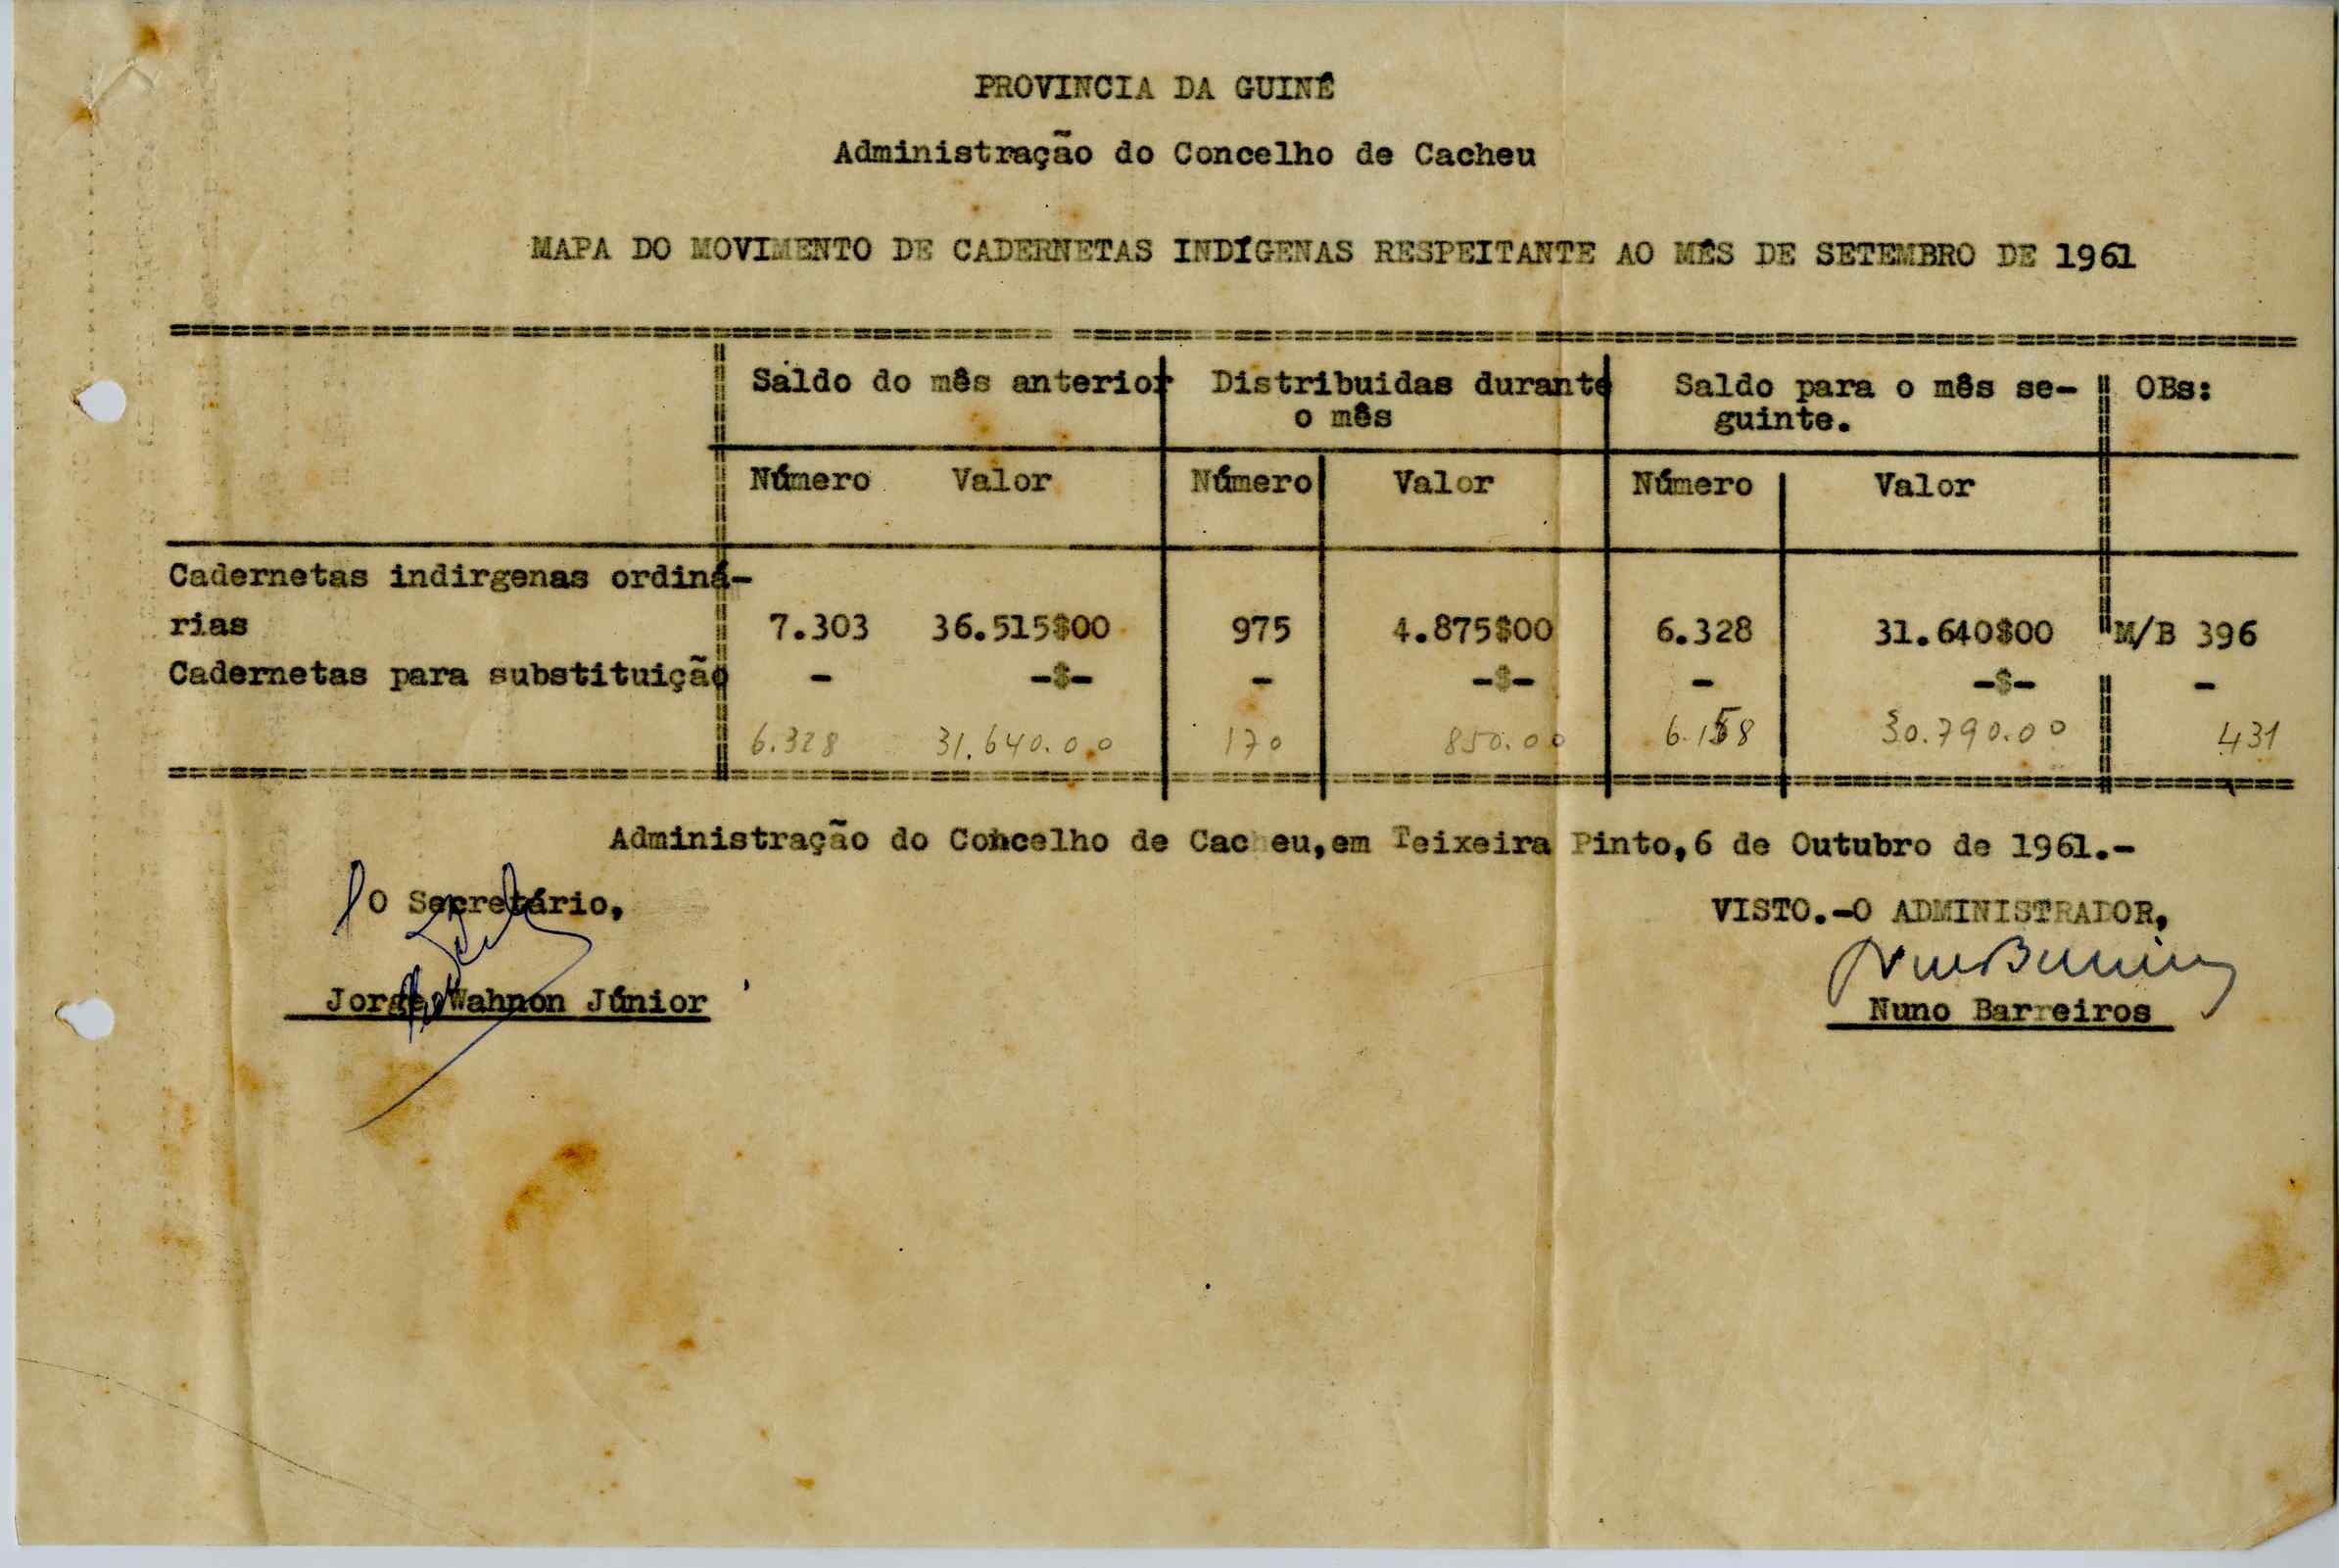 PROVINCIA DA GUINÉ
Administração do Concelho de Cacheu
MAPA DO MOVIMENTO DE CADERNETAS INDÍGENAS RESPEITANTE AO MÊS DE SETEMBRO DE 1961
Saldo do mês anterior Distribuidas durante Saldo para o mês se- OBs:
o mês guinte.
Número Valor Número Valor Número Valor
Cadernetas indirgenas ordiná-
rias 7.303 36.515$00 975 4.875$00 6.328 31.640$00 M/B 396
Cadernetas para substituição - -$- - -$- - -$- -
6.328 31.640.00 170 850.00 6.158 30.790.00 431
Administração do Concelho de Cacheu,em Teixeira Pinto,6 de Outubro de 1961.-
O Secretário, VISTO.-O ADMINISTRADOR,
Jorge Wahnon Júnior Nuno Barreiros